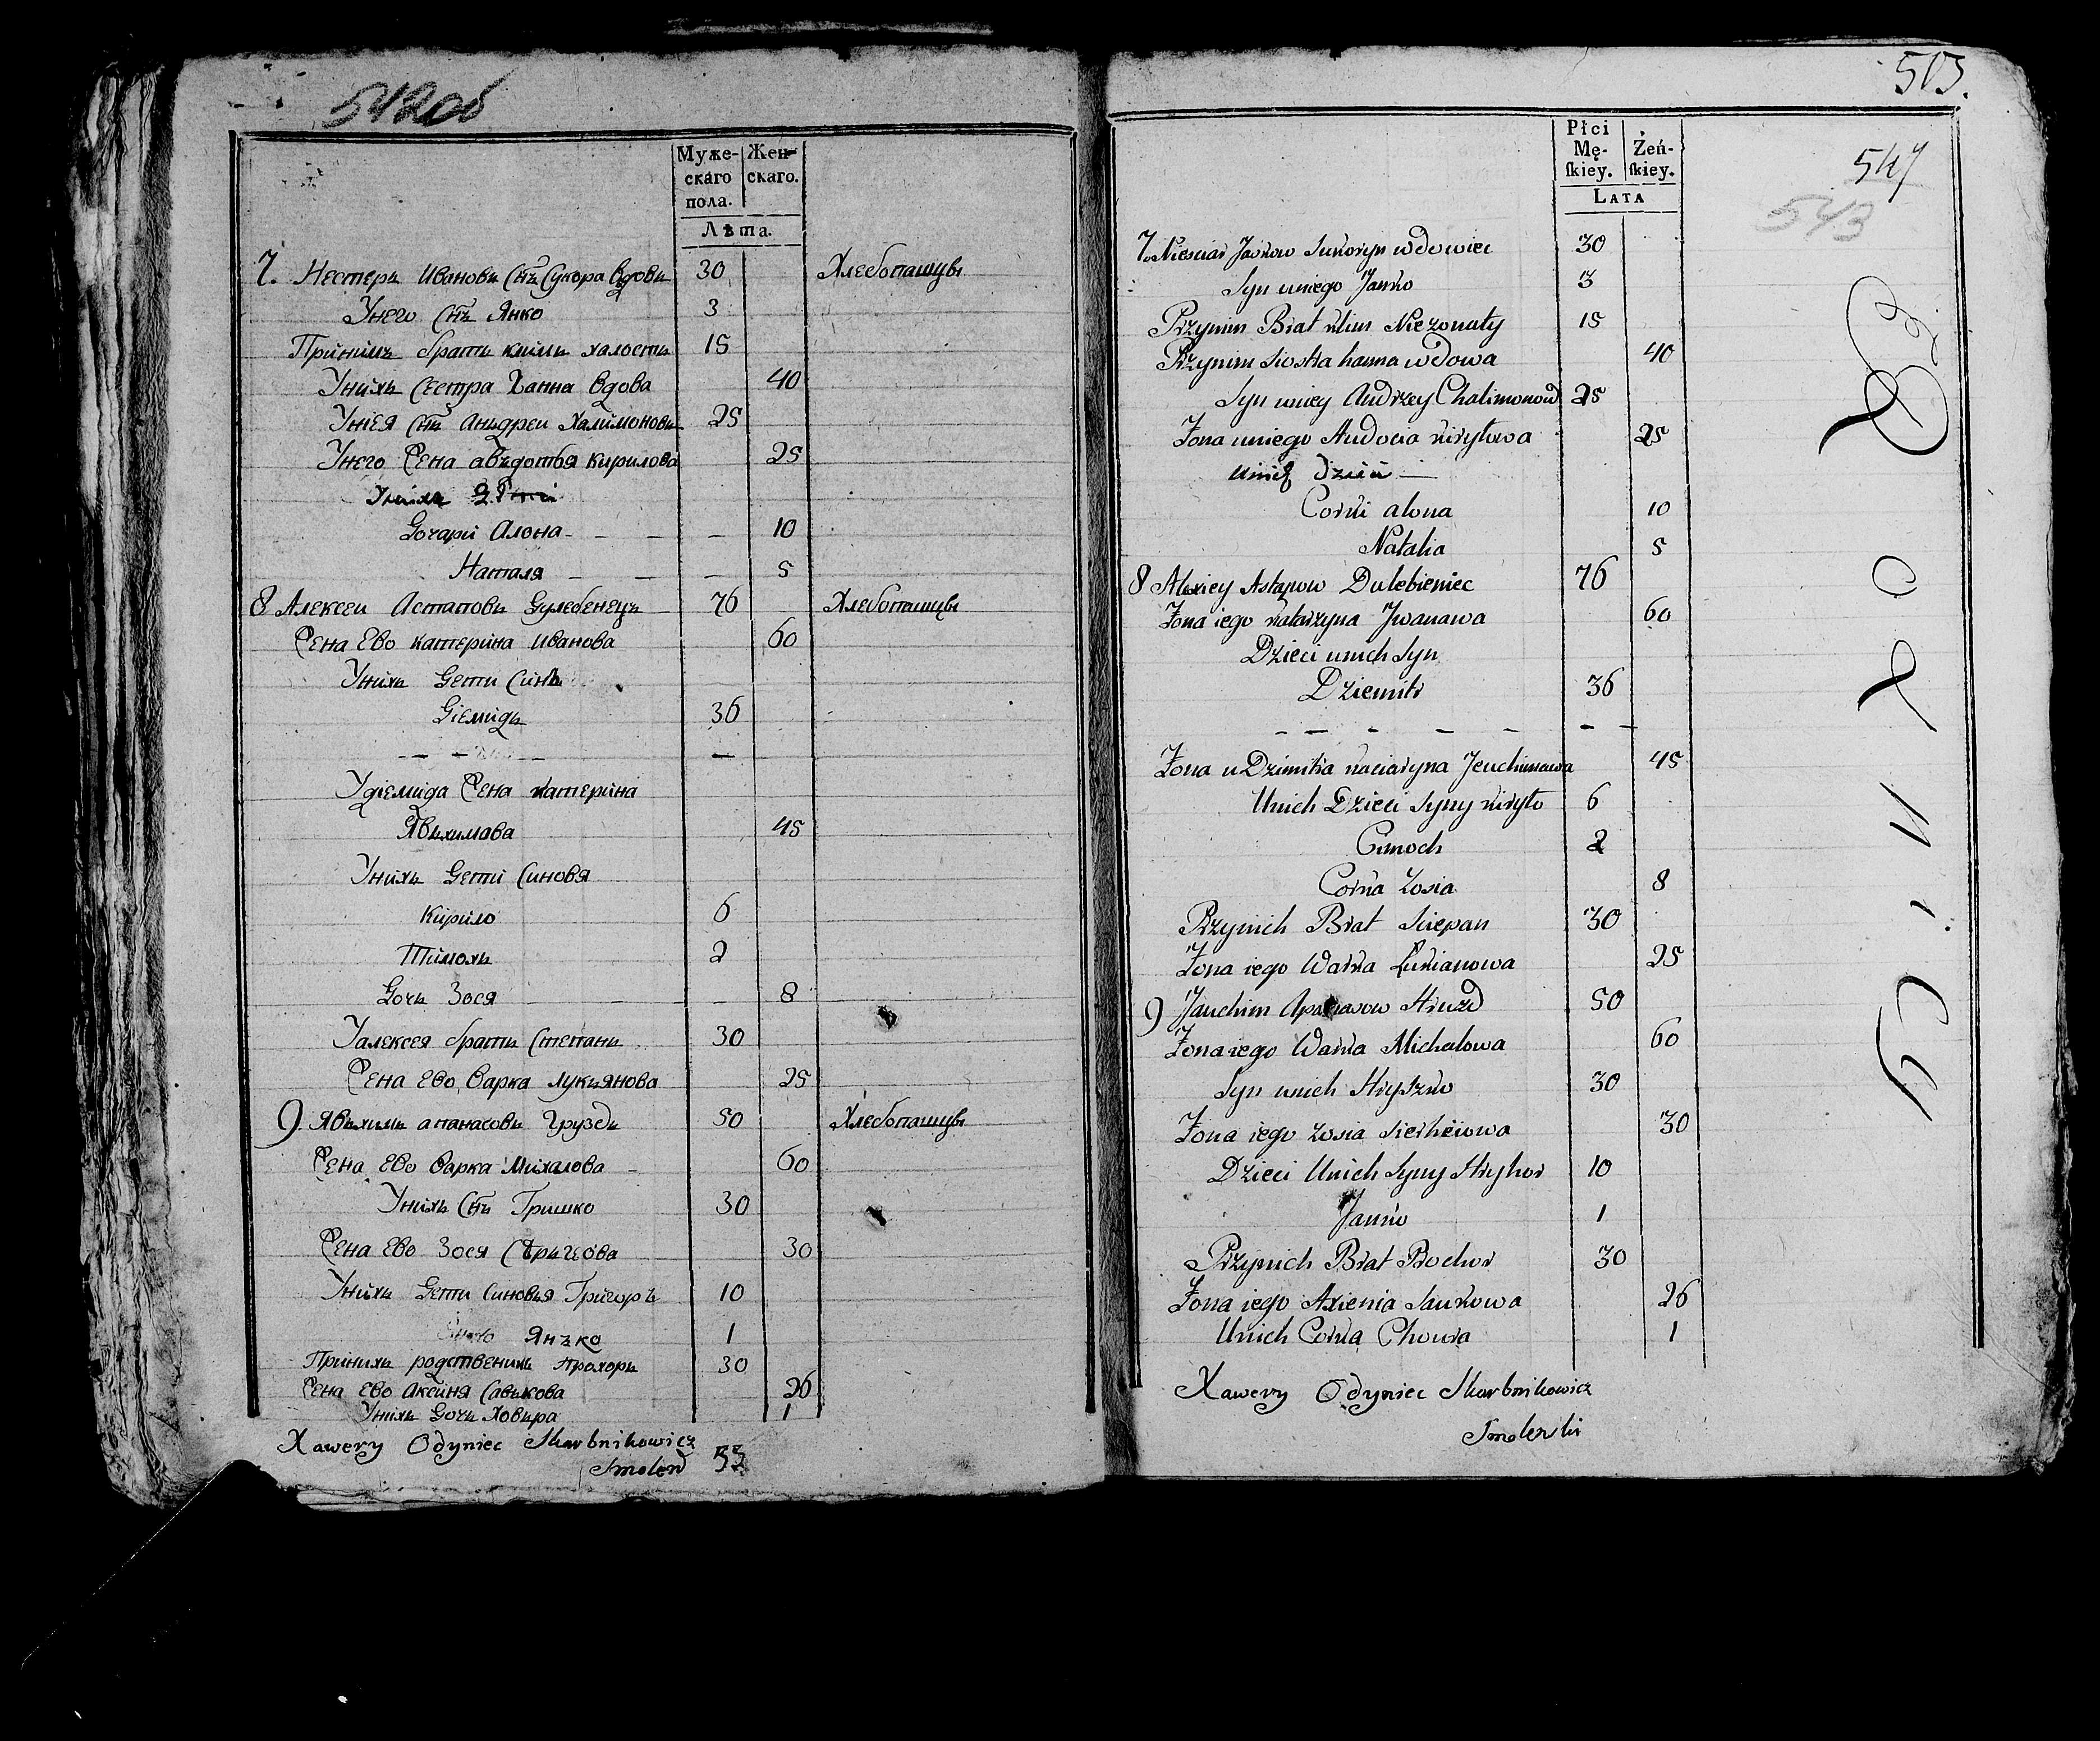 542об
Муже- Жен-
скаго скаго.
пола.
Лѣта.
7. Нестеръ Ивановъ Снъ Сукора вдовъ 30 Хлебопашцы
Унего Снъ Янко 3
Принимъ братъ климъ халостъ 15
Унихъ Сестра Ханна вдова 40
Унея Снъ Аньдрей Халимоновъ 25
Унего Жена авъдотья Кирилова 25
Унихъ
Дочари Алона 10
Наталя 5
8 Алексеи Астаповъ Дулебенецъ 76 Хлебопашцы
Жена Ево катерина Иванова 60
Унихъ Дети Синъ
Діемидъ 36
Удіемида Жена катерина
Явхимава 45
Унихъ Дети Синовя
Кирило 6
Тимохъ 2
Дочъ Зося 8
Уалексея братъ Степанъ 30
Жена Ево Варка Лукъянова 25
9. Явхимъ апанасовъ Груздъ 50 Хлебопашцы
Жена Ево Варка Михалова 60
Унихъ Снъ Гришко 30
Жена Ево Зося 30
Унихъ Дети Синовья Григоръ 10
Янъко 1
Принихъ родственикъ прохоръ 30
Жена Ево Аксиня Савъкова 26
Унихъ Дочъ Ховъра 1
Xawery Odyniec Skarbnikowicz
Smolen 53
503.
Płci
Mę- Żeń-
skiey. skiey.
LATA
547
543
7. Niesciar Jankow Sukoryn wdowiec 30
Syn uniego Janko 3
Przynim Brat klim Niezonaty 15
Przynim Siostra hanna wdowa 40
Syn uniey Andrzey Chalimonow 25
Zona uniego Audocia kiryłowa 25
Unich Dzieci
Corki alona 10
Natalia 5
8 Alexiey Astapow Dulebieniec 76
Zona iego katarzyna Jwanawa 60
Dzieci unich Syn
Dziemitr 36
Zona u Dzimitra kaciaryna Jeuchimawa 45
Unich Dzieci Syny kiryło 6
Cimoch 2
Corka Zosia 8
Przynich Brat Sciepan 30
Zona iego Warka Łukianowa 25
9 Jauchim Apanasow Hruzd 50
Zona iego Warka Michalowa 60
Syn unich Hryszko 30
Zona iego zosia Sierheiowa 30
Dzieci Unich Syny Hryhor 10
Janko 1
Przynich Brat Prochor 30
Zona iego Axienia Saukowa 26
Unich Corka Chowra 1
Xawery Odyniec Skarbnikowicz
Smolenski